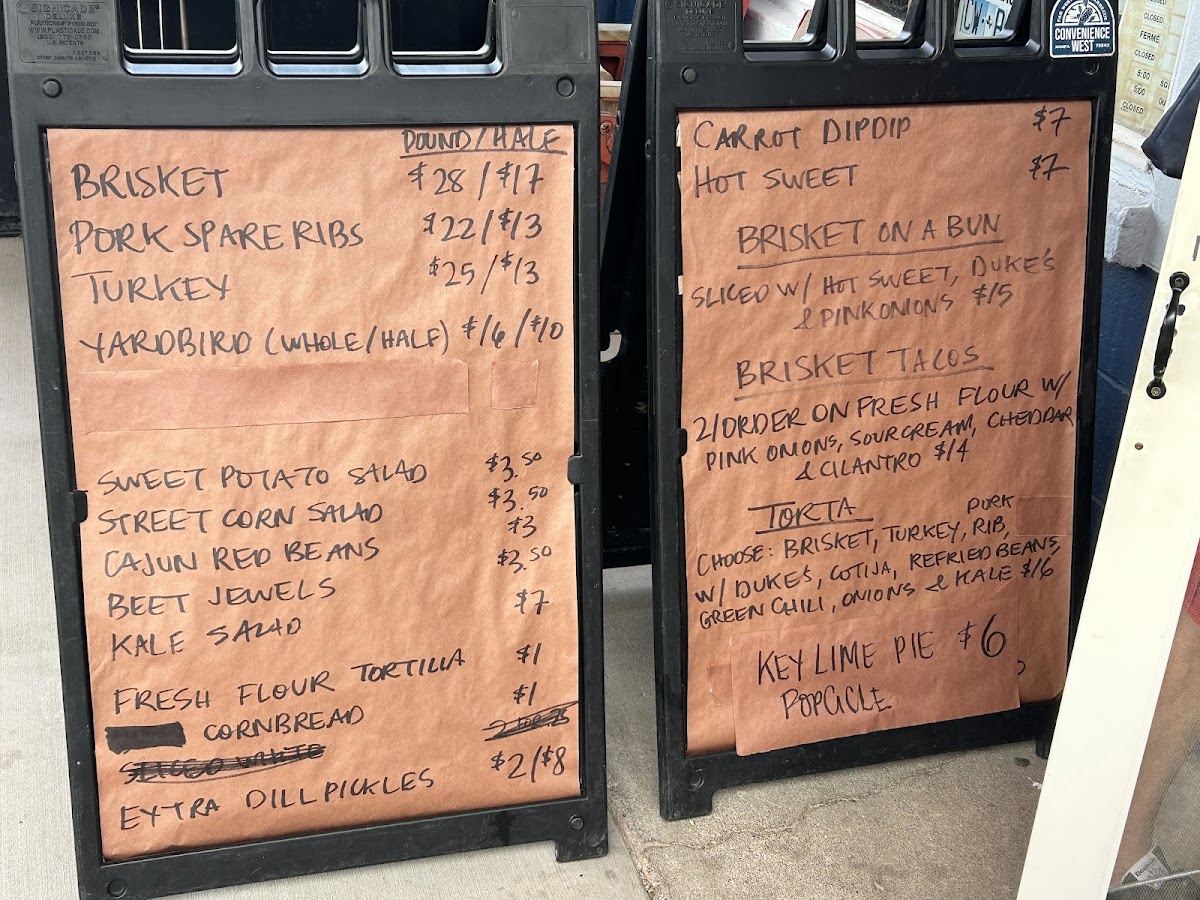 SIGNICADE
DELUXE
POUND/HALF
BRISKET $28/$17
PORK SPARE RIBS $22/$13
TURKEY $25/$13
YARDBIRD (WHOLE/HALF) $16/$10
SWEET POTATO SALAD $3.50
STREET CORN SALAD $3.50
CAJUN RED BEANS $3
BEET JEWELS $3.50
KALE SALAD $7
FRESH FLOUR TORTILLA $1
CORNBREAD $1
EXTRA DILL PICKLES $2/$8
CONVENIENCE
WEST
CARROT DIPDIP $7
HOT SWEET $7
BRISKET ON A BUN
SLICED W/ HOT SWEET, DUKE'S
& PINK ONIONS $15
BRISKET TACOS
2/ORDER ON FRESH FLOUR W/
PINK ONIONS, SOUR CREAM, CHEDDAR
& CILANTRO $14
TORTA
CHOOSE: BRISKET, TURKEY, PORK RIB,
W/ DUKE'S, COTIJA, REFRIED BEANS,
GREEN CHILI, ONIONS & KALE $16
KEY LIME PIE $6
POPCICLE
CLOSED
CLOSED
FERMÉ
CLOSED
5:00
5:00
CLOSED